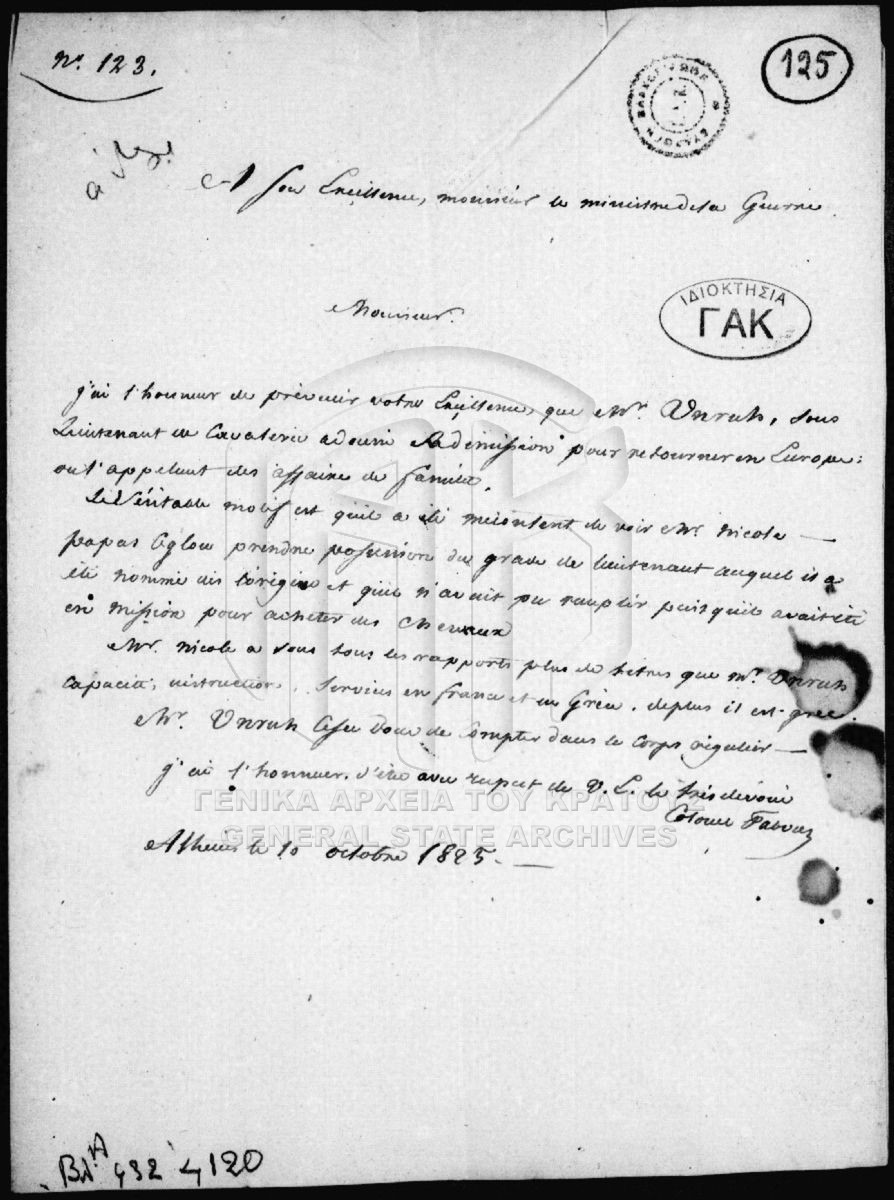 Nº. 123.
125
A Son Excellence, monsieur le ministre de la Guerre
ΙΔΙΟΚΤΗΣΙΑ
ΓΑΚ
Monsieur.
j'ai l'honneur de prévenir votre Excellence, que Mr. Unruh, sous
Lieutenant de Cavalerie a donné Sa démission pour retourner en Europe:
ou l'appelent des affaire de famille.
Le Véritable motif est qu'il a été méconten de voir Mr. Nicole —
papas Oglou prendre possession du grade de lieutenant auquel il a
été nommé dès l'origine et qu'il n'avait pu remplir puisqu'il avait été
en mission pour acheter des chevaux
Mr. Nicole a sous tous les rapports plus de titres que Mr. Unruh
capacité, instruction, services en france et en Grèce. de plus il est grec.
Mr. Unruh Cesse Donc de Compter dans le corps régulier —
j'ai l'honneur d'être avec respect de V. E. le très dévoué
Colonel Fabvier
ΓΕΝΙΚΑ ΑΡΧΕΙΑ ΤΟΥ ΚΡΑΤΟΥΣ
GENERAL STATE ARCHIVES
Athenes le 10 octobre 1825. —
432 4120